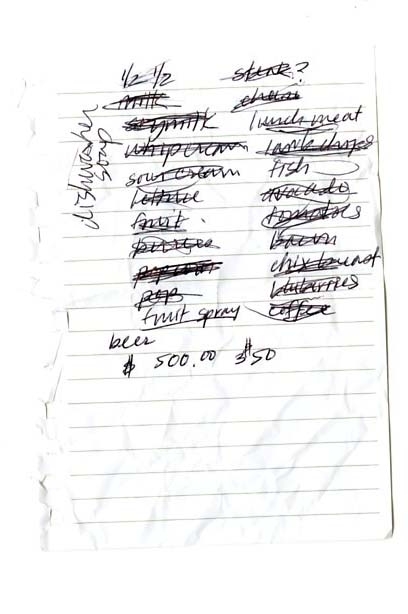 1/2 1/2
milk
soymilk
whip cream
sour cream
lettuce
fruit
popcorn
pop
fruit spray
beer
$ 500.00 $350
steak?
cheese
lunch meat
lamb chops
fish
avocado
tomatoes
bacon
chix breast
bluberries
coffee
dishwasher
soap